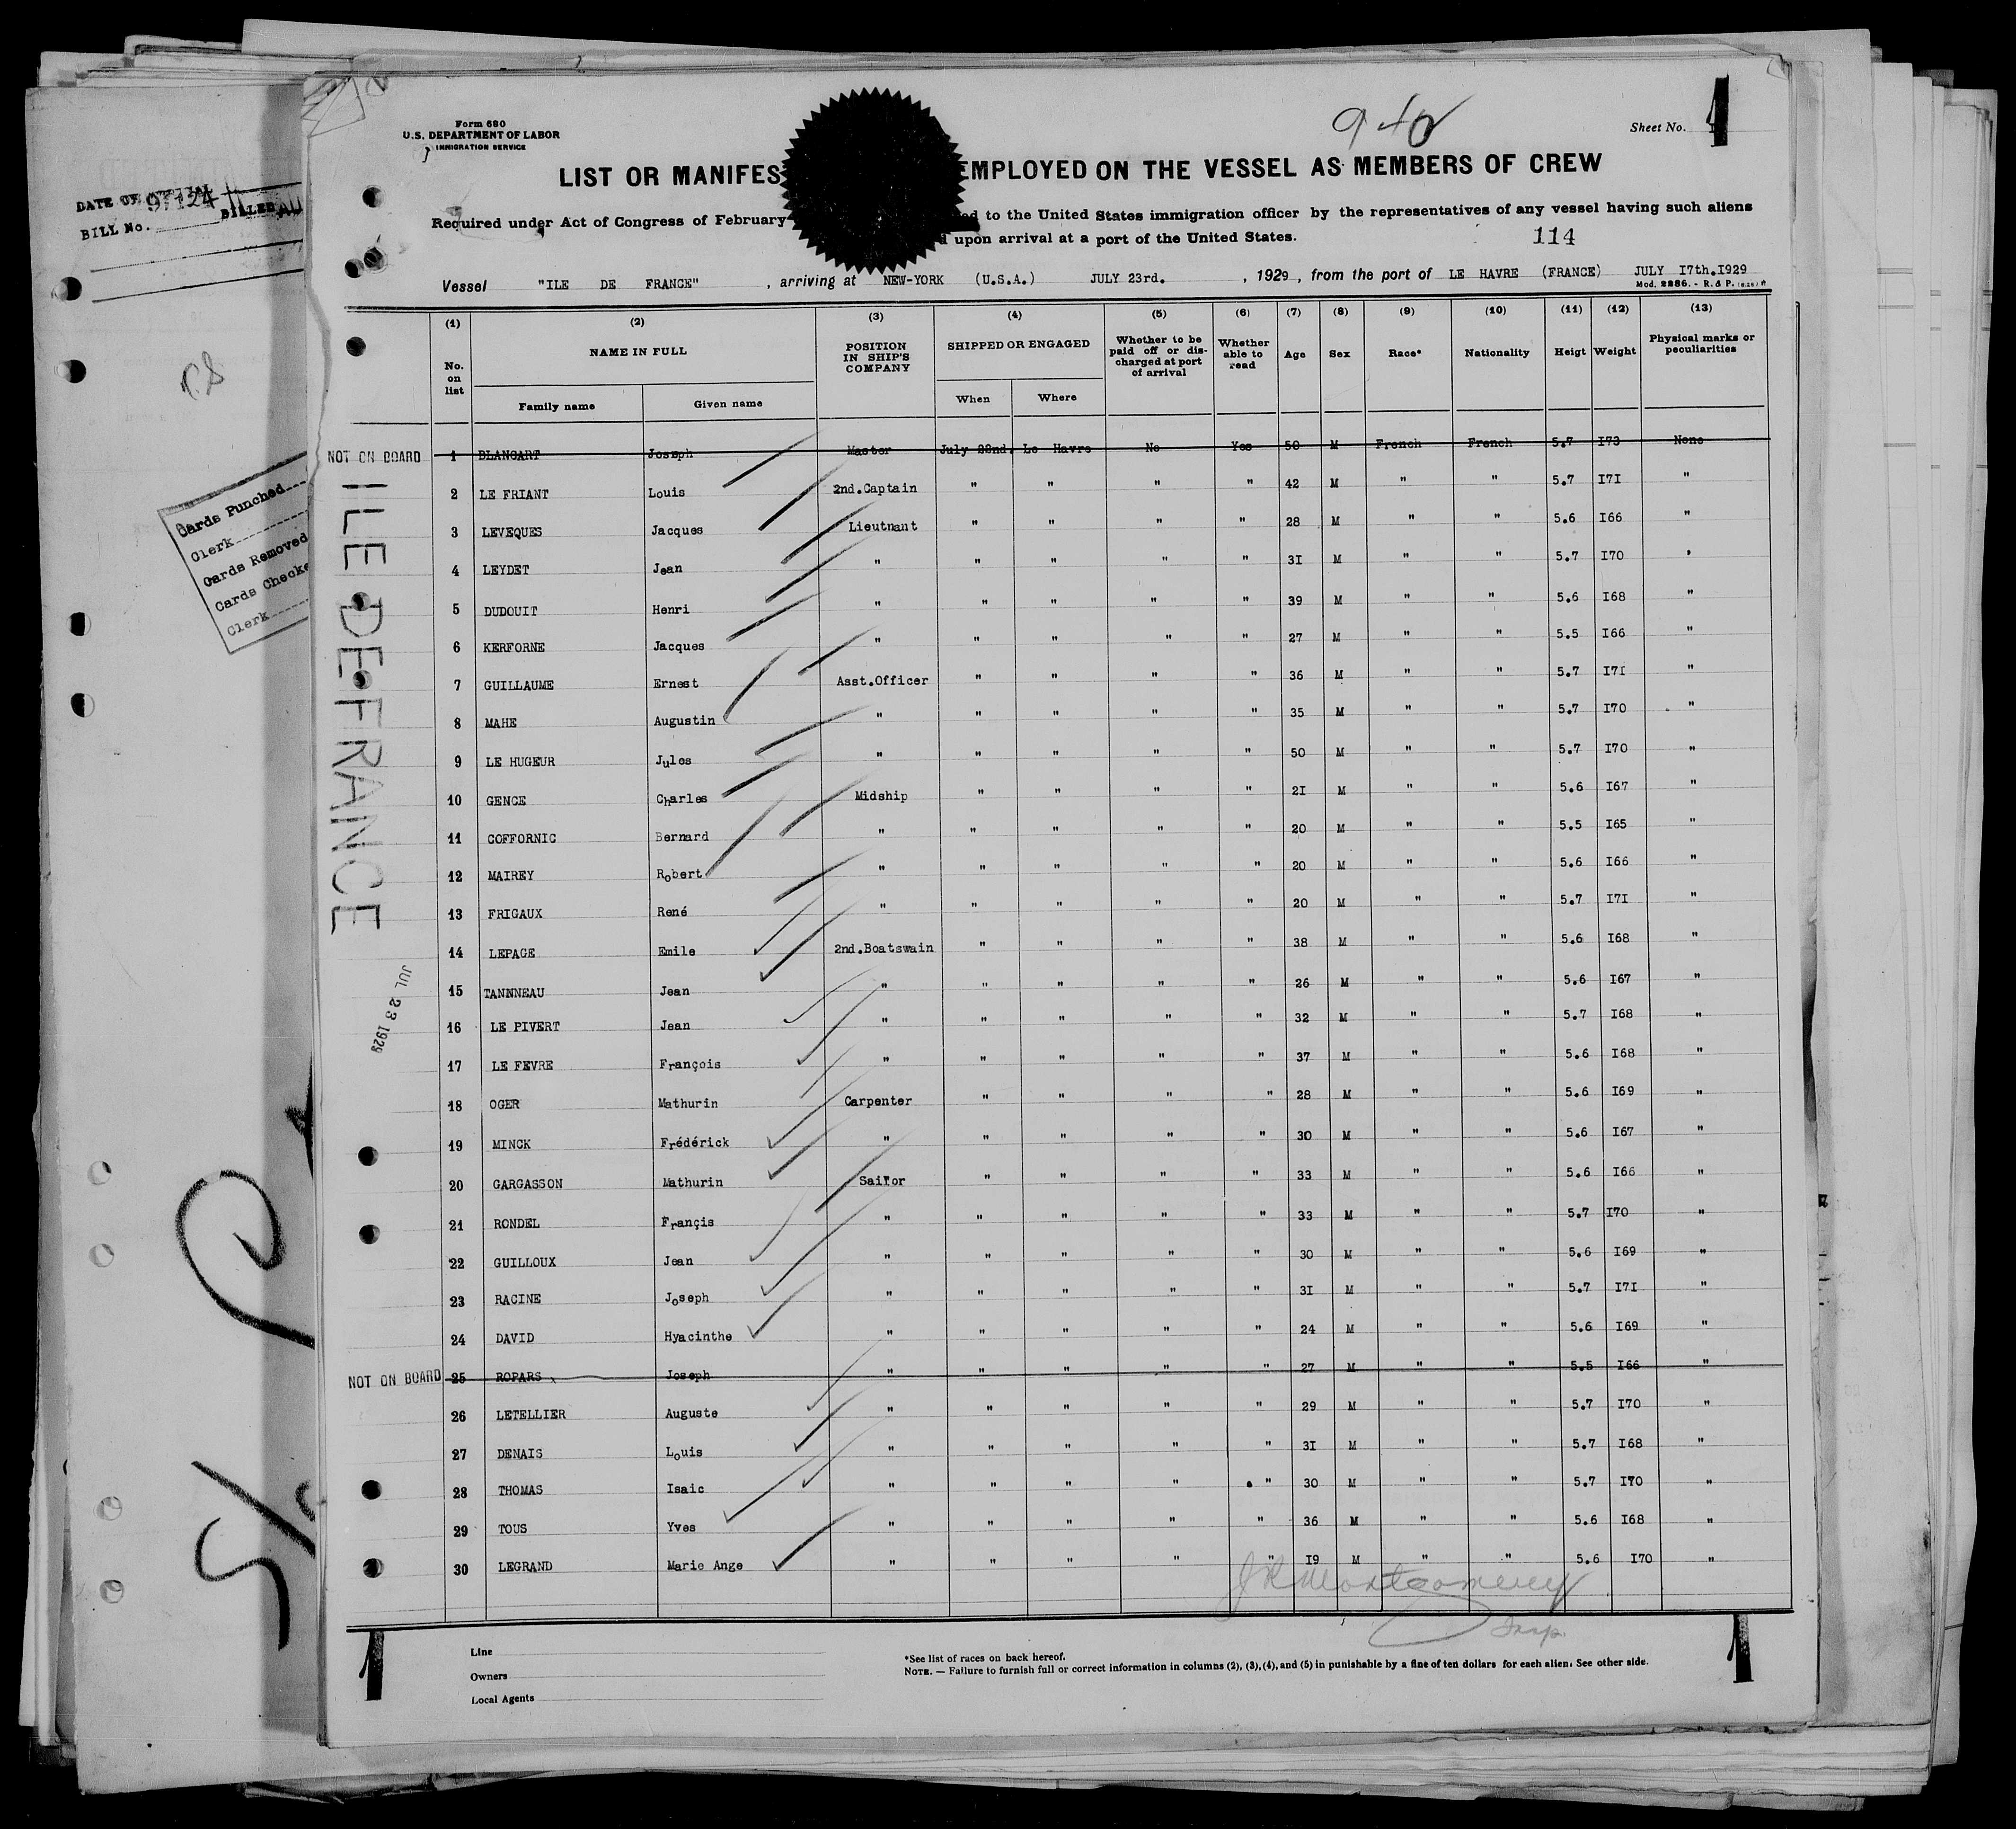 Form 680
U.S. DEPARTMENT OF LABOR
IMMIGRATION SERVICE
Sheet No.
LIST OR MANIFES EMPLOYED ON THE VESSEL AS MEMBERS OF CREW
Required under Act of Congress of February ed to the United States immigration officer by the representatives of any vessel having such aliens
upon arrival at a port of the United States.
114
Vessel "ILE DE FRANCE", arriving at NEW-YORK (U.S.A.) JULY 23rd., 1929, from the port of LE HAVRE (FRANCE) JULY I7th.I929
Mod. 2286. - R. & P.
(1) (2) (3) (4) (5) (6) (7) (8) (9) (10) (11) (12) (13)
No. on list NAME IN FULL POSITION IN SHIP'S COMPANY SHIPPED OR ENGAGED Whether to be paid off or discharged at port of arrival Whether able to read Age Sex Race* Nationality Heigt Weight Physical marks or peculiarities
Family name Given name When Where
NOT ON BOARD 1 BLANCART Joseph Master July 22nd. Le Havre No Yes 50 M French French 5.7 I73 None
2 LE FRIANT Louis 2nd.Captain " " " " 42 M " " 5.7 I7I "
3 LEVEQUES Jacques Lieutnant " " " " 28 M " " 5.6 I66 "
4 LEYDET Jean " " " " " 3I M " " 5.7 I70 "
5 DUDOUIT Henri " " " " " 39 M " " 5.6 I68 "
6 KERFORNE Jacques " " " " " 27 M " " 5.5 I66 "
7 GUILLAUME Ernest Asst.Officer " " " " 36 M " " 5.7 I7I "
8 MAHE Augustin " " " " " 35 M " " 5.7 I70 "
9 LE HUGEUR Jules " " " " " 50 M " " 5.7 I70 "
10 GENCE Charles Midship " " " " 2I M " " 5.6 I67 "
11 COFFORNIC Bernard " " " " " 20 M " " 5.5 I65 "
12 MAIREY Robert " " " " " 20 M " " 5.6 I66 "
13 FRIGAUX René " " " " " 20 M " " 5.7 I7I "
14 LEPAGE Emile 2nd.Boatswain " " " " 38 M " " 5.6 I68 "
15 TANNNEAU Jean " " " " " 26 M " " 5.6 I67 "
16 LE PIVERT Jean " " " " " 32 M " " 5.7 I68 "
17 LE FEVRE François " " " " " 37 M " " 5.6 I68 "
18 OGER Mathurin Carpenter " " " " 28 M " " 5.6 I69 "
19 MINCK Frédérick " " " " " 30 M " " 5.6 I67 "
20 GARGASSON Mathurin Sailor " " " " 33 M " " 5.6 I66 "
21 RONDEL Françis " " " " " 33 M " " 5.7 I70 "
22 GUILLOUX Jean " " " " " 30 M " " 5.6 I69 "
23 RACINE Joseph " " " " " 3I M " " 5.7 I7I "
24 DAVID Hyacinthe " " " " " 24 M " " 5.6 I69 "
NOT ON BOARD 25 ROPARS Joseph " " " " " 27 M " " 5.5 I66 "
26 LETELLIER Auguste " " " " " 29 M " " 5.7 I70 "
27 DENAIS Louis " " " " " 3I M " " 5.7 I68 "
28 THOMAS Isaic " " " " " 30 M " " 5.7 I70 "
29 TOUS Yves " " " " " 36 M " " 5.6 I68 "
30 LEGRAND Marie Ange " " " " " I9 M " " 5.6 I70 "
JR Montgomery
Insp.
Line
Owners
Local Agents
*See list of races on back hereof.
NOTE. — Failure to furnish full or correct information in columns (2), (3), (4), and (5) in punishable by a fine of ten dollars for each alien. See other side.
ILE DE FRANCE
JUL 23 1929
DATE OF
BILL No. 97124 BILLED
Cards Punched
Clerk
Cards Removed
Cards Checke
Clerk